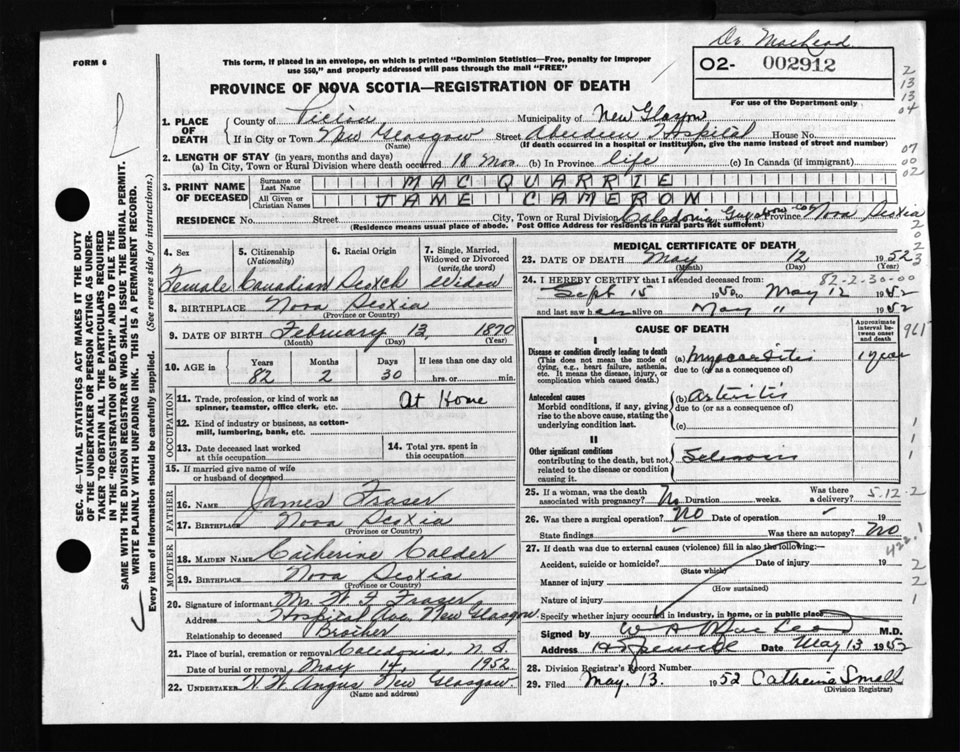 Dr. MacLeod
FORM 6
This form, if placed in an envelope, on which is printed "Dominion Statistics—Free, penalty for improper
use $50," and properly addressed will pass through the mail "FREE"
02- 002912
PROVINCE OF NOVA SCOTIA—REGISTRATION OF DEATH
For use of the Department only
2
13
13
04
1. PLACE OF DEATH
County of Pictou Municipality of New Glasgow
If in City or Town New Glasgow Street Aberdeen Hospital House No.
(Name) (If death occurred in a hospital or institution, give the name instead of street and number)
2. LENGTH OF STAY (in years, months and days)
(a) In City, Town or Rural Division where death occurred 18 Mos. (b) In Province life (c) In Canada (if immigrant)
07
00
02
3. PRINT NAME OF DECEASED
Surname or Last Name MAC QUARRIE
All Given or Christian Names JANE CAMERON
RESIDENCE No. Street City, Town or Rural Division Caledonia Guysboro Co. Province Nova Scotia
(Residence means usual place of abode. Post Office Address for residents in rural parts not sufficient)
4. Sex Female
5. Citizenship (Nationality) Canadian
6. Racial Origin Scotch
7. Single, Married, Widowed or Divorced (write the word) Widow
8. BIRTHPLACE Nova Scotia
(Province or Country)
9. DATE OF BIRTH February 13, 1870
(Month) (Day) (Year)
10. AGE in Years 82 Months 2 Days 30 If less than one day old hrs. or min.
OCCUPATION
11. Trade, profession, or kind of work as spinner, teamster, office clerk, etc. At Home
12. Kind of industry or business, as cotton-mill, lumbering, bank, etc.
13. Date deceased last worked at this occupation
14. Total yrs. spent in this occupation
15. If married give name of wife or husband of deceased
FATHER
16. NAME James Fraser
17. BIRTHPLACE Nova Scotia
(Province or Country)
MOTHER
18. MAIDEN NAME Catherine Calder
19. BIRTHPLACE Nova Scotia
(Province or Country)
20. Signature of informant Mr. W. F. Fraser
Address Hospital Ave. New Glasgow
Relationship to deceased Brother
21. Place of burial, cremation or removal Caledonia, N. S.
Date of burial or removal May 14, 1952
22. UNDERTAKER H. W. Angus New Glasgow.
(Name and address)
MEDICAL CERTIFICATE OF DEATH
23. DATE OF DEATH May 12 1952
(Month) (Day) (Year)
24. I HEREBY CERTIFY that I attended deceased from: 82-2-30-00
Sept 15 1950 to May 12 1952
and last saw her alive on May " 1952
CAUSE OF DEATH
Approximate interval between onset and death
961
I
Disease or condition directly leading to death
(This does not mean the mode of dying, e.g., heart failure, asthenia, etc. It means the disease, injury, or complication which caused death.)
(a) Myocarditis 1 year
due to (or as a consequence of)
Antecedent causes
Morbid conditions, if any, giving rise to the above cause, stating the underlying condition last.
(b) Arteritis
due to (or as a consequence of)
(c)
II
Other significant conditions
contributing to the death, but not related to the disease or condition causing it.
25. If a woman, was the death associated with pregnancy? No Duration weeks. Was there a delivery? 5.12.2
26. Was there a surgical operation? NO Date of operation 19
State findings Was there an autopsy? No
422.1
27. If death was due to external causes (violence) fill in also the following:—
Accident, suicide or homicide? (State which) Date of injury 19
Manner of injury
(How sustained)
Nature of injury
Specify whether injury occurred in industry, in home, or in public place
Signed by M.D.
Address Hopewell Date May 13 1952
28. Division Registrar's Record Number
29. Filed May. 13. 1952 Catherine Small
(Division Registrar)
SEC. 46—VITAL STATISTICS ACT MAKES IT THE DUTY
OF THE UNDERTAKER OR PERSON ACTING AS UNDER-
TAKER TO OBTAIN ALL THE PARTICULARS REQUIRED
IN THE "REGISTRATION OF DEATH" AND TO FILE THE
SAME WITH THE DIVISION REGISTRAR WHO SHALL ISSUE THE BURIAL PERMIT.
WRITE PLAINLY WITH UNFADING INK. THIS IS A PERMANENT RECORD.
Every item of information should be carefully supplied. (See reverse side for instructions.)